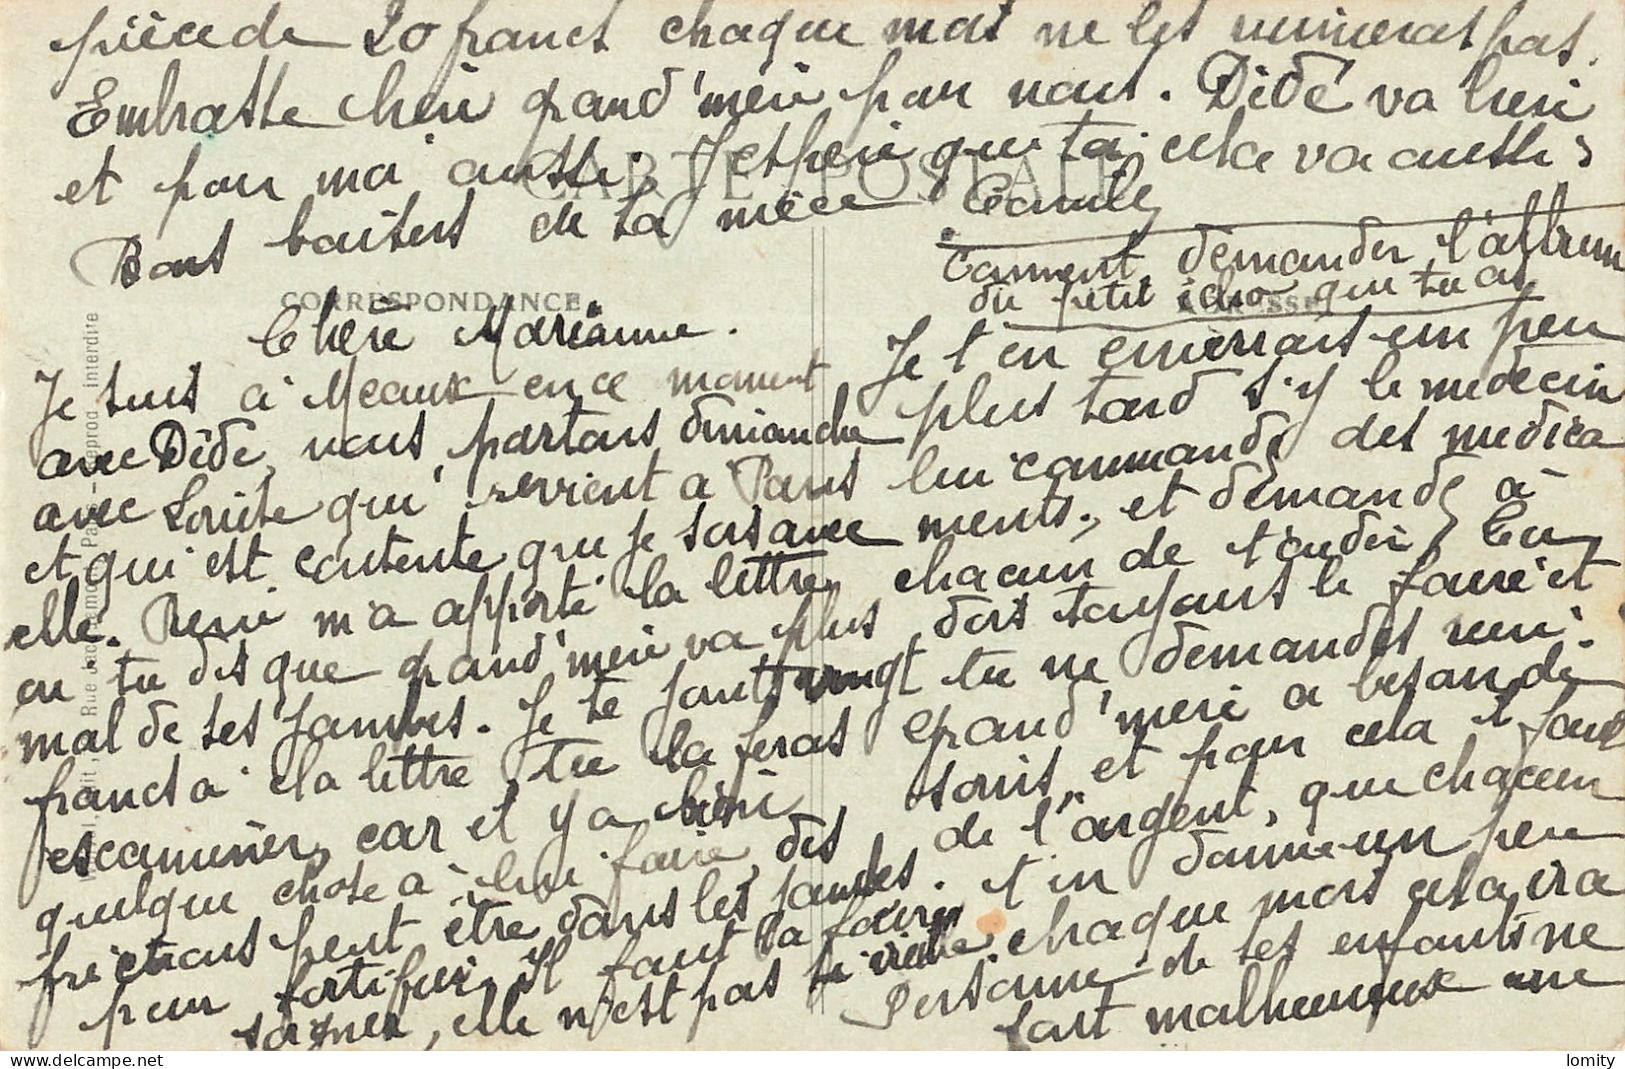 Chère Marianne.
Je suis à Meaux en ce moment
avec Dédé, nous partons dimanche
avec Louise qui revient a Paris
et qui est contente que je sois avec
elle. René m'a apporté la lettre,
ou tu dis que grand'mère va plus
mal de ses jambes. Je te joint vingt
francs à la lettre, tu la feras
escaminer, car il y a bien
quelque chose à lui faire, des
frictions peut être dans les jambes.
pour fortifier. Il faut la faire
soigner, elle n'est pas si vieille.
Je t'en enverrais un peu
plus tard s'y le medecin
lui commande des medica
ments, et demande à
chacun de t'aider, tu
dois toujours le faire et
tu ne demandes rien.
grand'mère a besoin de
soins, et pour cela il faut
de l'argent, que chacun
t'en donne un peu
chaque mois cela ira
Personne de ses enfants ne
sont malheureux une
pièce de 20 francs chaque mois ne les ruinerat pas.
Embrasse bien grand'mère pour nous. Dédé va bien
et pour moi aussi, J'espère que toi cela va aussi
Bons baisers de ta mère Camille
Comment demander l'album
du petit écho que tu as
CARTE POSTALE
CORRESPONDANCE
ADRESSE
Rue Jac Paris - Reprod. interdite
lomity